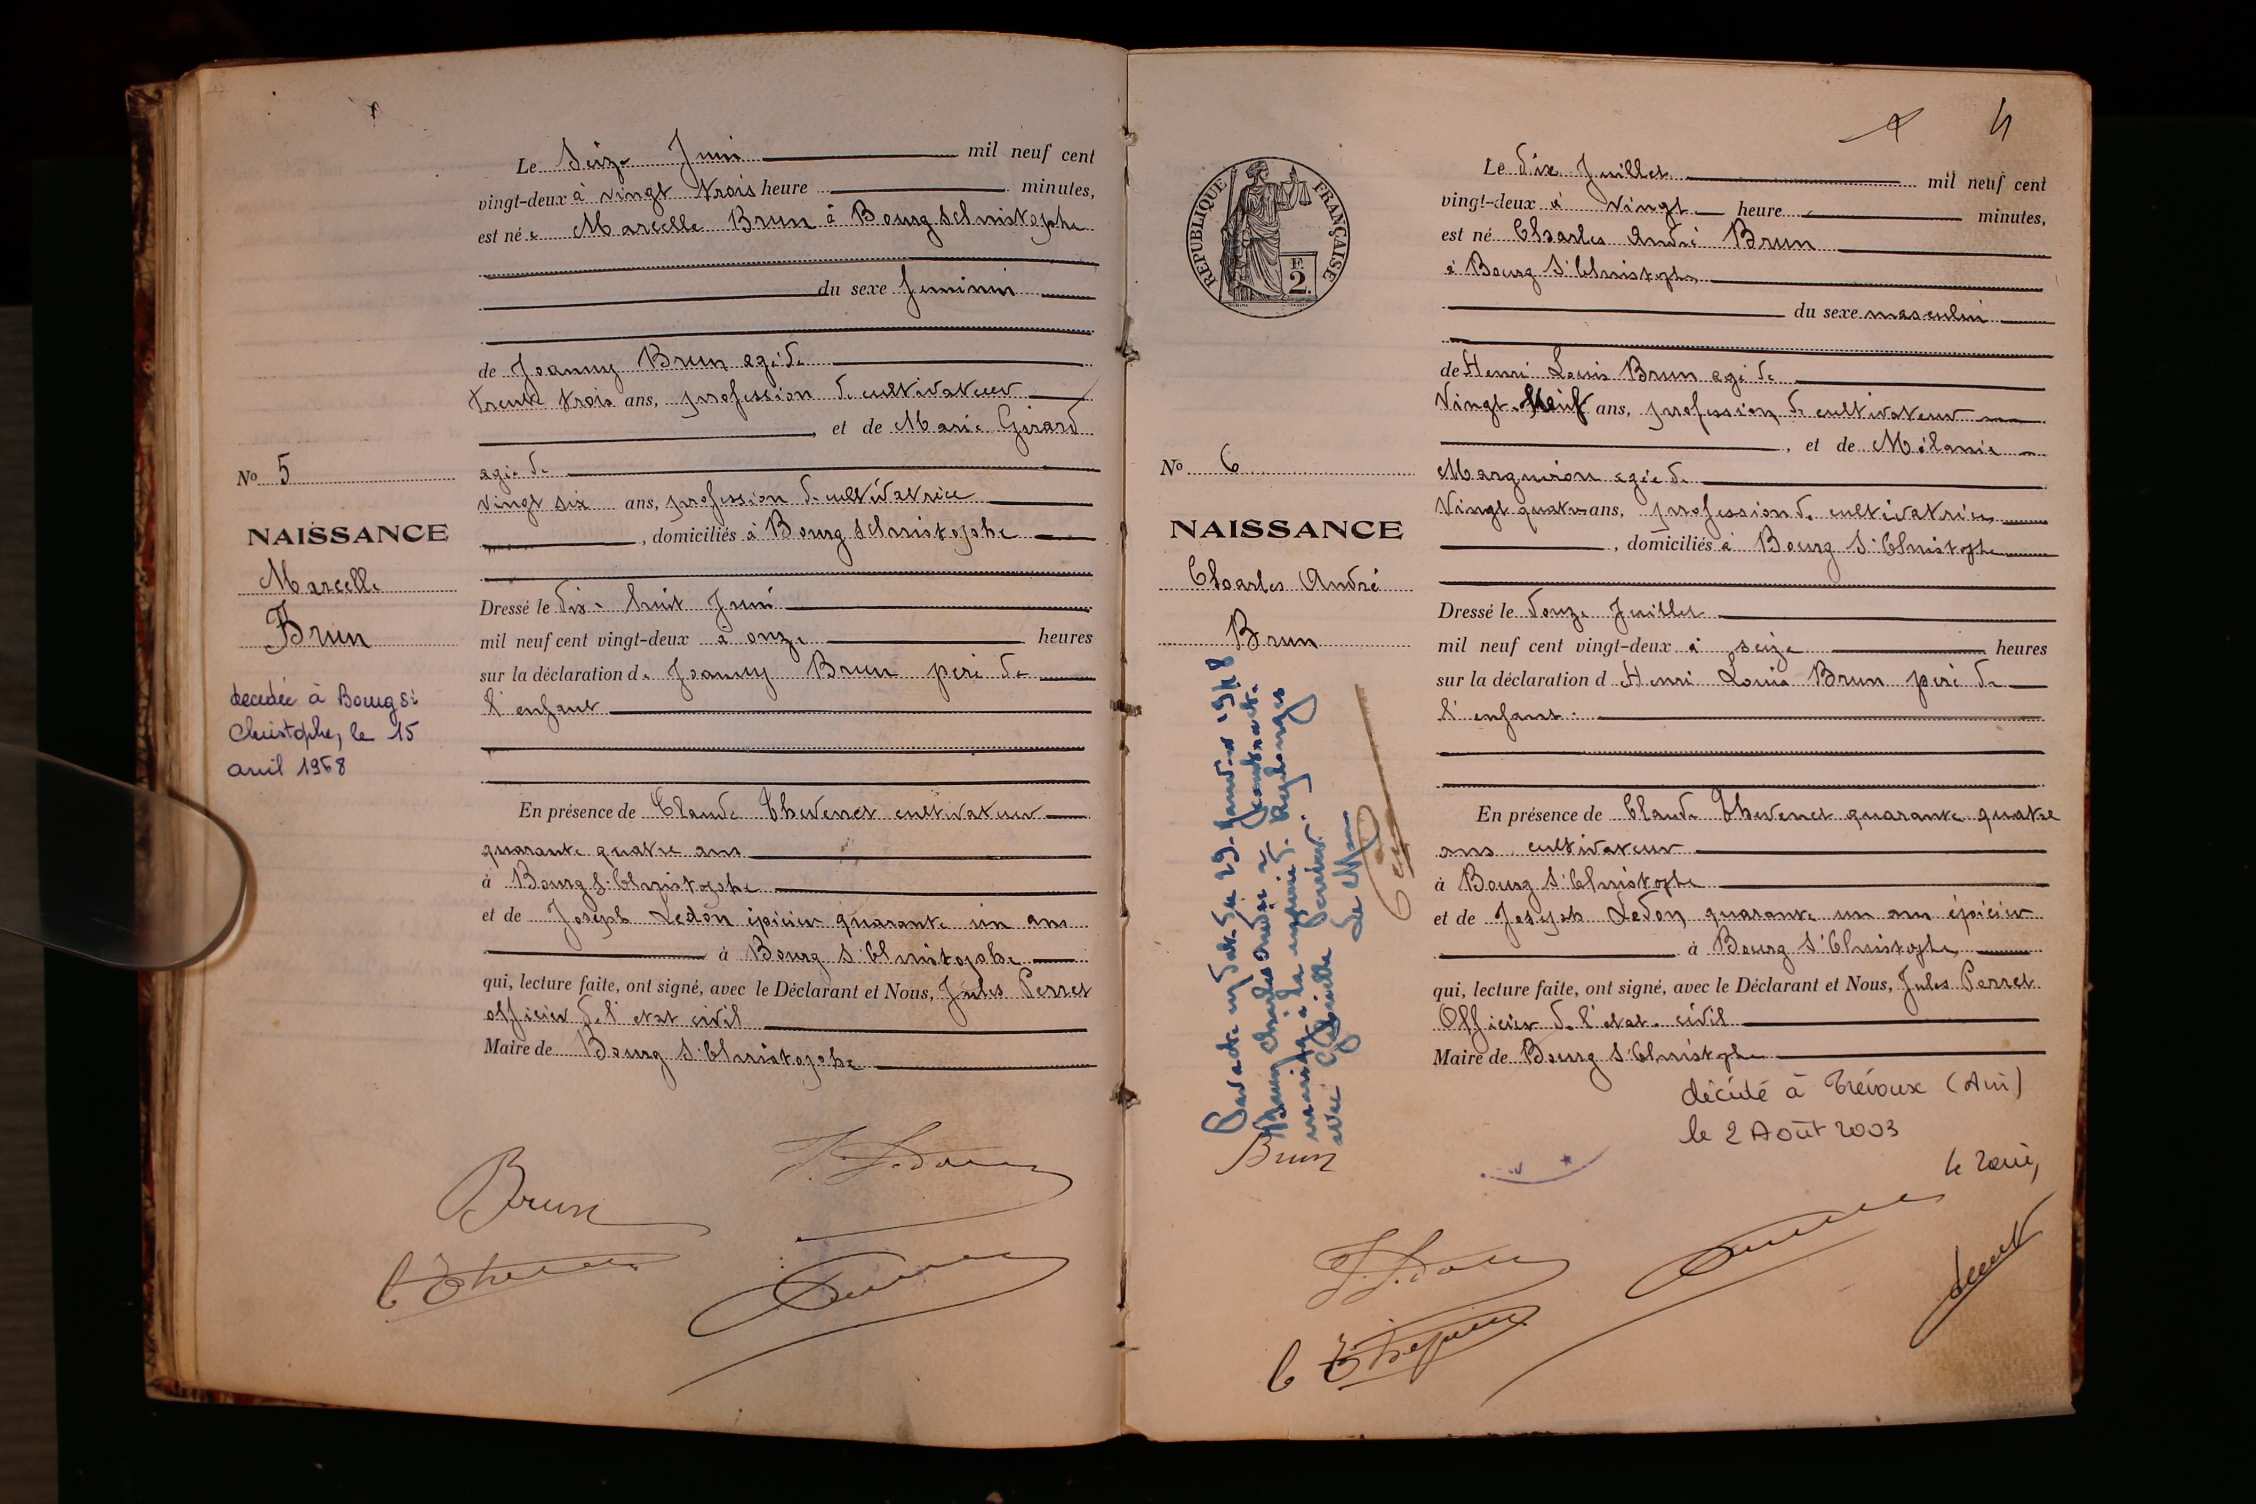 Le Seize Juin mil neuf cent
vingt-deux à vingt trois heure minutes,
est née Marcelle Brun à Bourg St Christophe
du sexe feminin
de Joanny Brun agé de
trente trois ans, profession de cultivateur
, et de Marie Girard
agée de
vingt six ans, profession de cultivatrice
, domiciliés à Bourg St Christophe
No 5
NAISSANCE
Marcelle
Brun
decedée à Bourg St
Christophe, le 15
avril 1968
Dressé le dix-huit Juin
mil neuf cent vingt-deux à onze heures
sur la déclaration de Joanny Brun père de
l'enfant
En présence de Claude Thevenet cultivateur
quarante quatre ans
à Bourg St Christophe
et de Joseph Ledon épicier quarante un ans
à Bourg St Christophe
qui, lecture faite, ont signé, avec le Déclarant et Nous, Jules Perret
officier de l'etat civil
Maire de Bourg St Christophe
Brun
J. Ledon
C Thevenet
4
RÉPUBLIQUE FRANÇAISE
2 F.
Le dix Juillet mil neuf cent
vingt-deux à Vingt heure minutes,
est né Charles André Brun
à Bourg St Christophe
du sexe masculin
de Henri Louis Brun agé de
Vingt-Neuf ans, profession de cultivateur
, et de Mélanie
Marguiron agée de
Vingt quatre ans, profession de cultivatrice
, domiciliés à Bourg St Christophe
No 6
NAISSANCE
Charles André
Brun
Dressé le douze Juillet
mil neuf cent vingt-deux à seize heures
sur la déclaration d Henri Louis Brun père de
l'enfant.
En présence de Claude Thevenet quarante quatre
ans cultivateur
à Bourg St Christophe
et de Joseph Ledon quarante un ans épicier
à Bourg St Christophe
qui, lecture faite, ont signé, avec le Déclarant et Nous, Jules Perret
Officier de l'etat civil
Maire de Bourg St Christophe
Par acte en date du 29 Janvier 1948
Brun Charles André a contracté
mariage à la mairie de
avec
Le Maire
décédé à Trévoux (Ain)
le 2 Août 2003
le Maire,
Brun
J. Ledon
C Thevenet